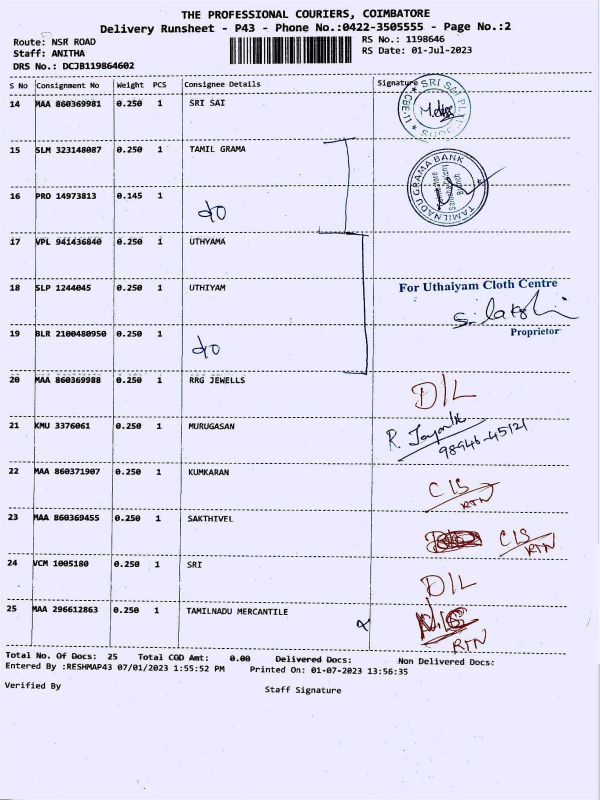 THE PROFESSIONAL COURIERS, COIMBATORE
Delivery Runsheet - P43 - Phone No.:0422-3505555 - Page No.:2
Route: NSR ROAD RS No.: 1198646
Staff: ANITHA RS Date: 01-Jul-2023
DRS No.: DCJB119864602
S No Consignment No Weight PCS Consignee Details Signature
14 MAA 860369981 0.250 1 SRI SAI
SRI SAI PLY
CBE-11
15 SLM 323148087 0.250 1 TAMIL GRAMA
TAMILNADU GRAMA BANK
Branch
16 PRO 14973813 0.145 1
do
17 VPL 941436840 0.250 1 UTHYAMA
18 SLP 1244045 0.250 1 UTHIYAM
For Uthaiyam Cloth Centre
S. lakshi
Proprietor
19 BLR 2100480950 0.250 1
do
20 MAA 860369988 0.250 1 RRG JEWELLS
D/L
21 KMU 3376061 0.250 1 MURUGASAN
R.
98946-45121
22 MAA 860371907 0.250 1 KUMKARAN
C/S
RTN
23 MAA 860369455 0.250 1 SAKTHIVEL
C/S
RTN
24 VCM 1005180 0.250 1 SRI
D/L
25 MAA 296612863 0.250 1 TAMILNADU MERCANTILE
RTN
Total No. Of Docs: 25 Total COD Amt: 0.00 Delivered Docs: Non Delivered Docs:
Entered By :RESHMAP43 07/01/2023 1:55:52 PM Printed On: 01-07-2023 13:56:35
Verified By Staff Signature